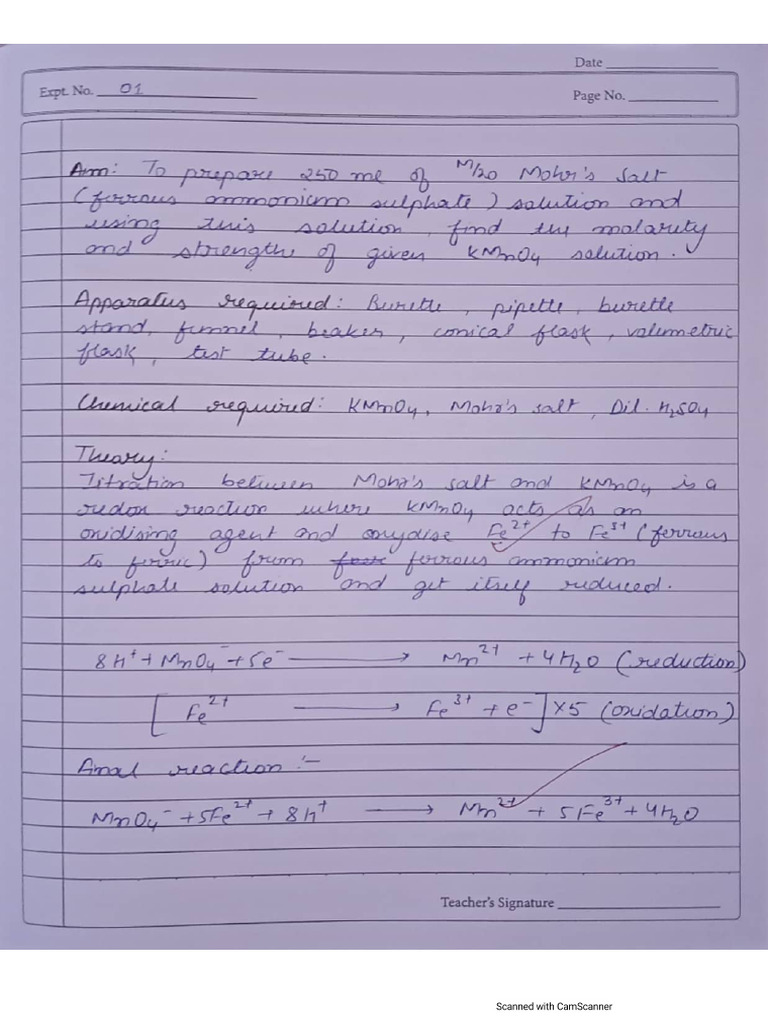 Date
Expt. No. 01
Page No.
Aim: To prepare 250 ml of M/20 Mohr's Salt
(ferrous ammonium sulphate) solution and
using this solution, find the molarity
and strength of given KMnO4 solution.
Apparatus required: Burette, pipette, burette
stand, funnel, beaker, conical flask, volumetric
flask, test tube.
Chemical required: KMnO4, Mohr's salt, Dil. H2SO4
Theory:
Titration between Mohr's salt and KMnO4 is a
redox reaction where KMnO4 acts as an
oxidising agent and oxydise Fe²⁺ to Fe³⁺ (ferrous
to ferric) from ferrous ammonium
sulphate solution and get itself reduced.
8H⁺ + MnO4⁻ + 5e⁻ ⟶ Mn²⁺ + 4H2O (reduction)
[Fe²⁺ ⟶ Fe³⁺ + e⁻] ×5 (oxidation)
Final reaction :-
MnO4⁻ + 5Fe²⁺ + 8H⁺ ⟶ Mn²⁺ + 5Fe³⁺ + 4H2O
Teacher's Signature
Scanned with CamScanner